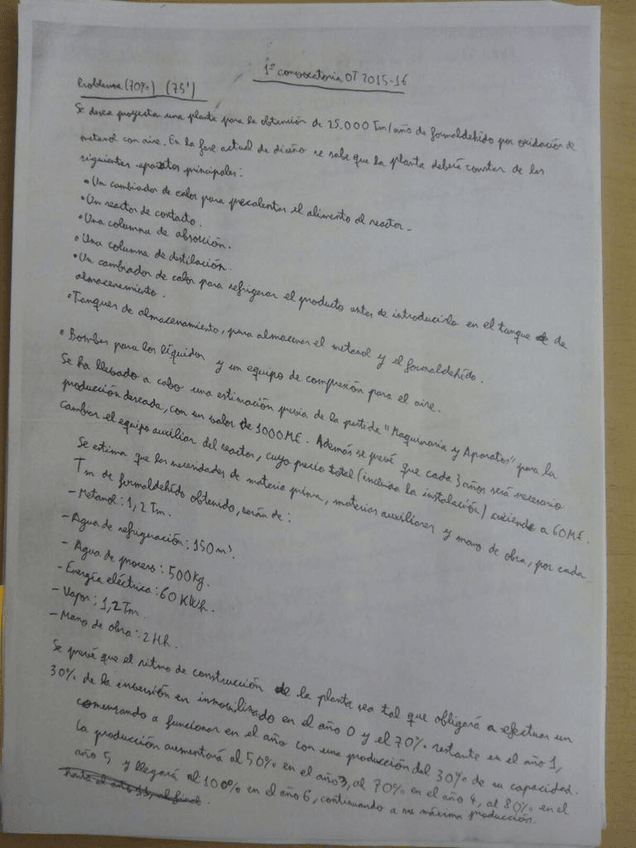 1ª convocatoria OT 2015-16
Problema (70%) (75')
Se desea proyectar una planta para la obtención de 25.000 Tm/año de formaldehído por oxidación de
metanol con aire. En la fase actual de diseño se sabe que la planta deberá constar de los
siguientes aparatos principales:
• Un cambiador de calor para precalentar el alimento al reactor.
• Un reactor de contacto.
• Una columna de absorción.
• Una columna de destilación.
• Un cambiador de calor para refrigerar el producto antes de introducirlo en el tanque de de
almacenamiento.
• Tanques de almacenamiento, para almacenar el metanol y el formaldehído.
• Bombas para los líquidos y un equipo de compresión para el aire.
Se ha llevado a cabo una estimación previa de la partida "Maquinaria y Aparatos" para la
producción deseada, con un valor de 1000M€. Además se prevé que cada 3 años será necesario
cambiar el equipo auxiliar del reactor, cuyo precio total (incluida la instalación) asciende a 60M€.
Se estima que las necesidades de materia prima, materias auxiliares y mano de obra, por cada
Tm de formaldehído obtenido, serán de:
- Metanol: 1,2 Tm.
- Agua de refrigeración: 150 m³.
- Agua de proceso: 500kg.
- Energía eléctrica: 60 KWh.
- Vapor: 1,2Tm.
- Mano de obra: 2 Hh.
Se prevé que el ritmo de construcción de la planta sea tal que obligará a efectuar un
30% de la inversión en inmovilizado en el año 0 y el 70% restante en el año 1,
comenzando a funcionar en el año con una producción del 30% de su capacidad.
La producción aumentará al 50% en el año 3, al 70% en el año 4, al 80% en el
año 5 y llegará al 100% en el año 6, continuando a su máxima producción.